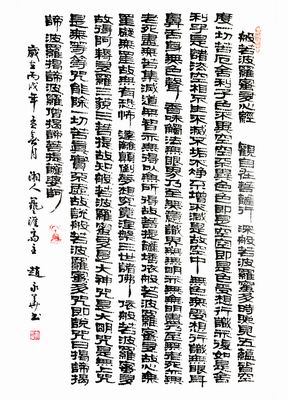 般若波羅蜜多心經 觀自在菩薩行深般若波羅蜜多時照見五蘊皆空
度一切苦厄舍利子色不異空空不異色色即是空空即是色受想行識亦復如是舍
利子是諸法空相不生不滅不垢不淨不增不減是故空中無色無受想行識無眼耳
鼻舌身意無色聲香味觸法無眼界乃至無意識界無無明亦無無明盡乃至無老死亦無
老死盡無苦集滅道無智亦無得以無所得故菩提薩埵依般若波羅蜜多故心無
罣礙無罣礙故無有恐怖遠離顛倒夢想究竟涅槃三世諸佛依般若波羅蜜多
故得阿耨多羅三藐三菩提故知般若波羅蜜多是大神咒是大明咒是無上咒
是無等等咒能除一切苦真實不虛故說般若波羅蜜多咒即說咒曰揭諦揭
諦波羅揭諦波羅僧揭諦菩提薩婆訶
歲在丙戌年 月 人 主 趙永